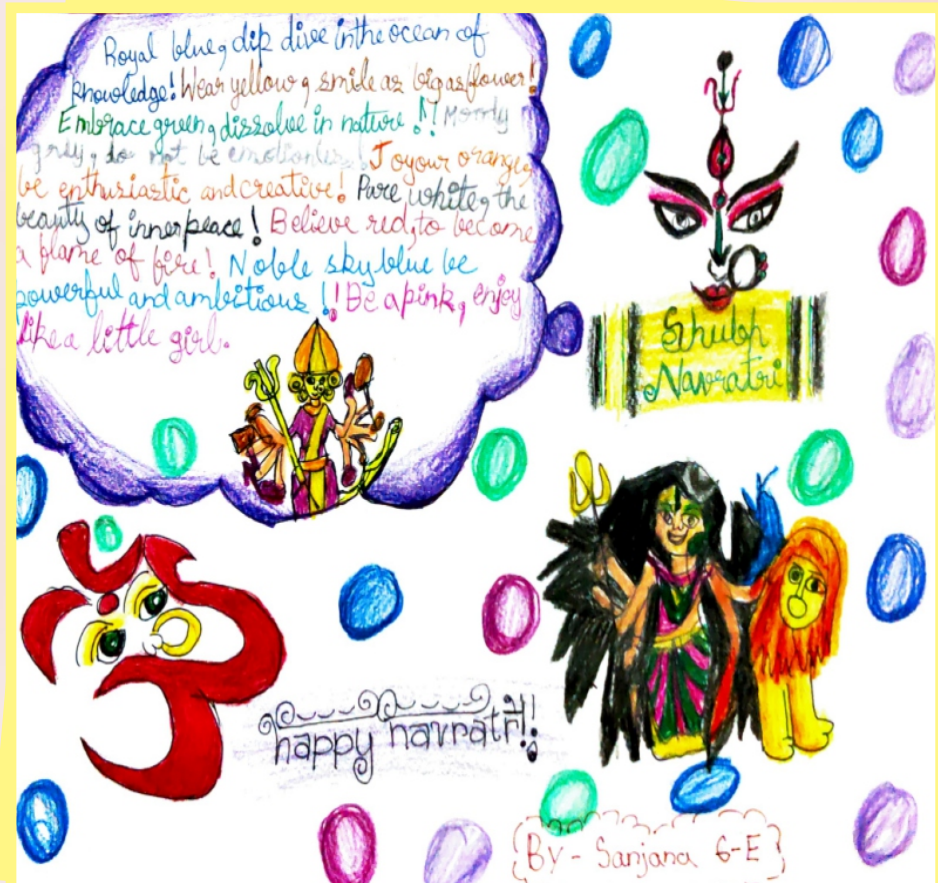 Royal blue, dip dive in the ocean of
knowledge! Wear yellow, smile as big as flower!
Embrace green, dissolve in nature!! Moody
gray, do not be emotionless! Joyour orange,
be enthusiastic and creative! Pure white, the
beauty of inner peace! Believe red, to become
a flame of fire! Noble sky blue be
powerful and ambitious!! Be a pink, enjoy
like a little girl.
Shubh
Navratri
happy navratri!!
By - Sanjana 6-E